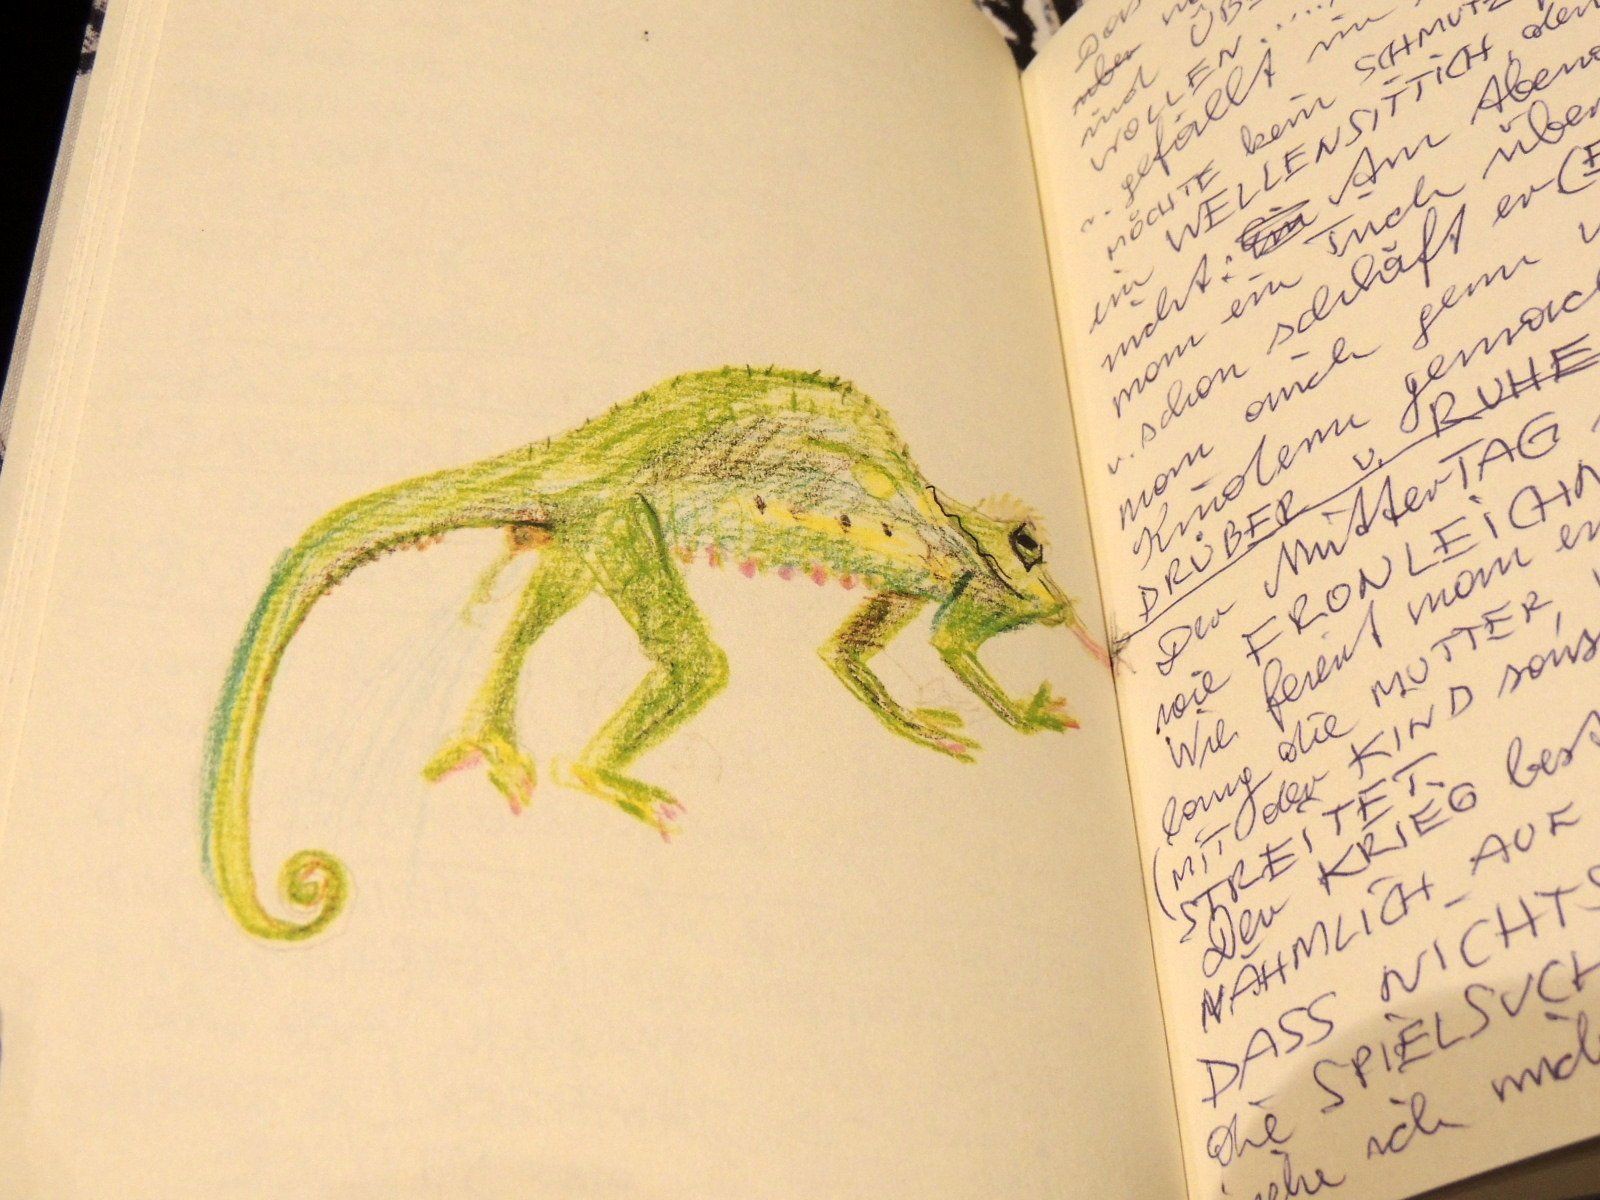 Das
aber
und ÜB
WOLLEN.....,
v. gefällt mir
MÖCHTE kein SCHMUTZ
ein WELLENSITTICH, den
nicht: Am Abend
man ein Tuch über
v. schon schläft er (E
man auch gern
Knödeln gemach
DRÜBER v. RUHE
Der MutterTAG
wie FRONLEICHN
Wie feiert man en
lang die MUTTER,
(MIT der KIND sons
STREITET.
Der KRIEG best
NÄHMLICH AUF
DASS NICHTS
die SPIELSUCH
ich